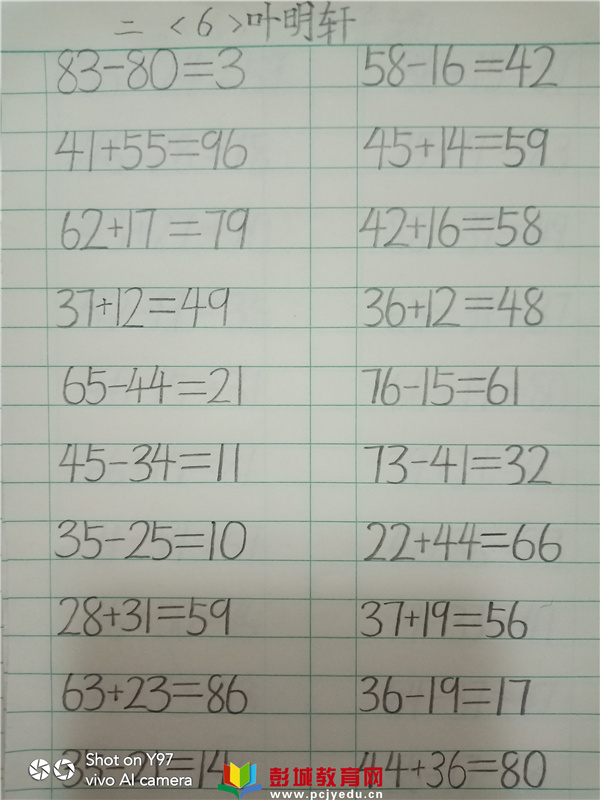 二 <6> 叶明轩
83-80=3 58-16=42
41+55=96 45+14=59
62+17=79 42+16=58
37+12=49 36+12=48
65-44=21 76-15=61
45-34=11 73-41=32
35-25=10 22+44=66
28+31=59 37+19=56
63+23=86 36-19=17
35-21=14 44+36=80
Shot on Y97
vivo AI camera
彭城教育网
www.pcjyedu.cn